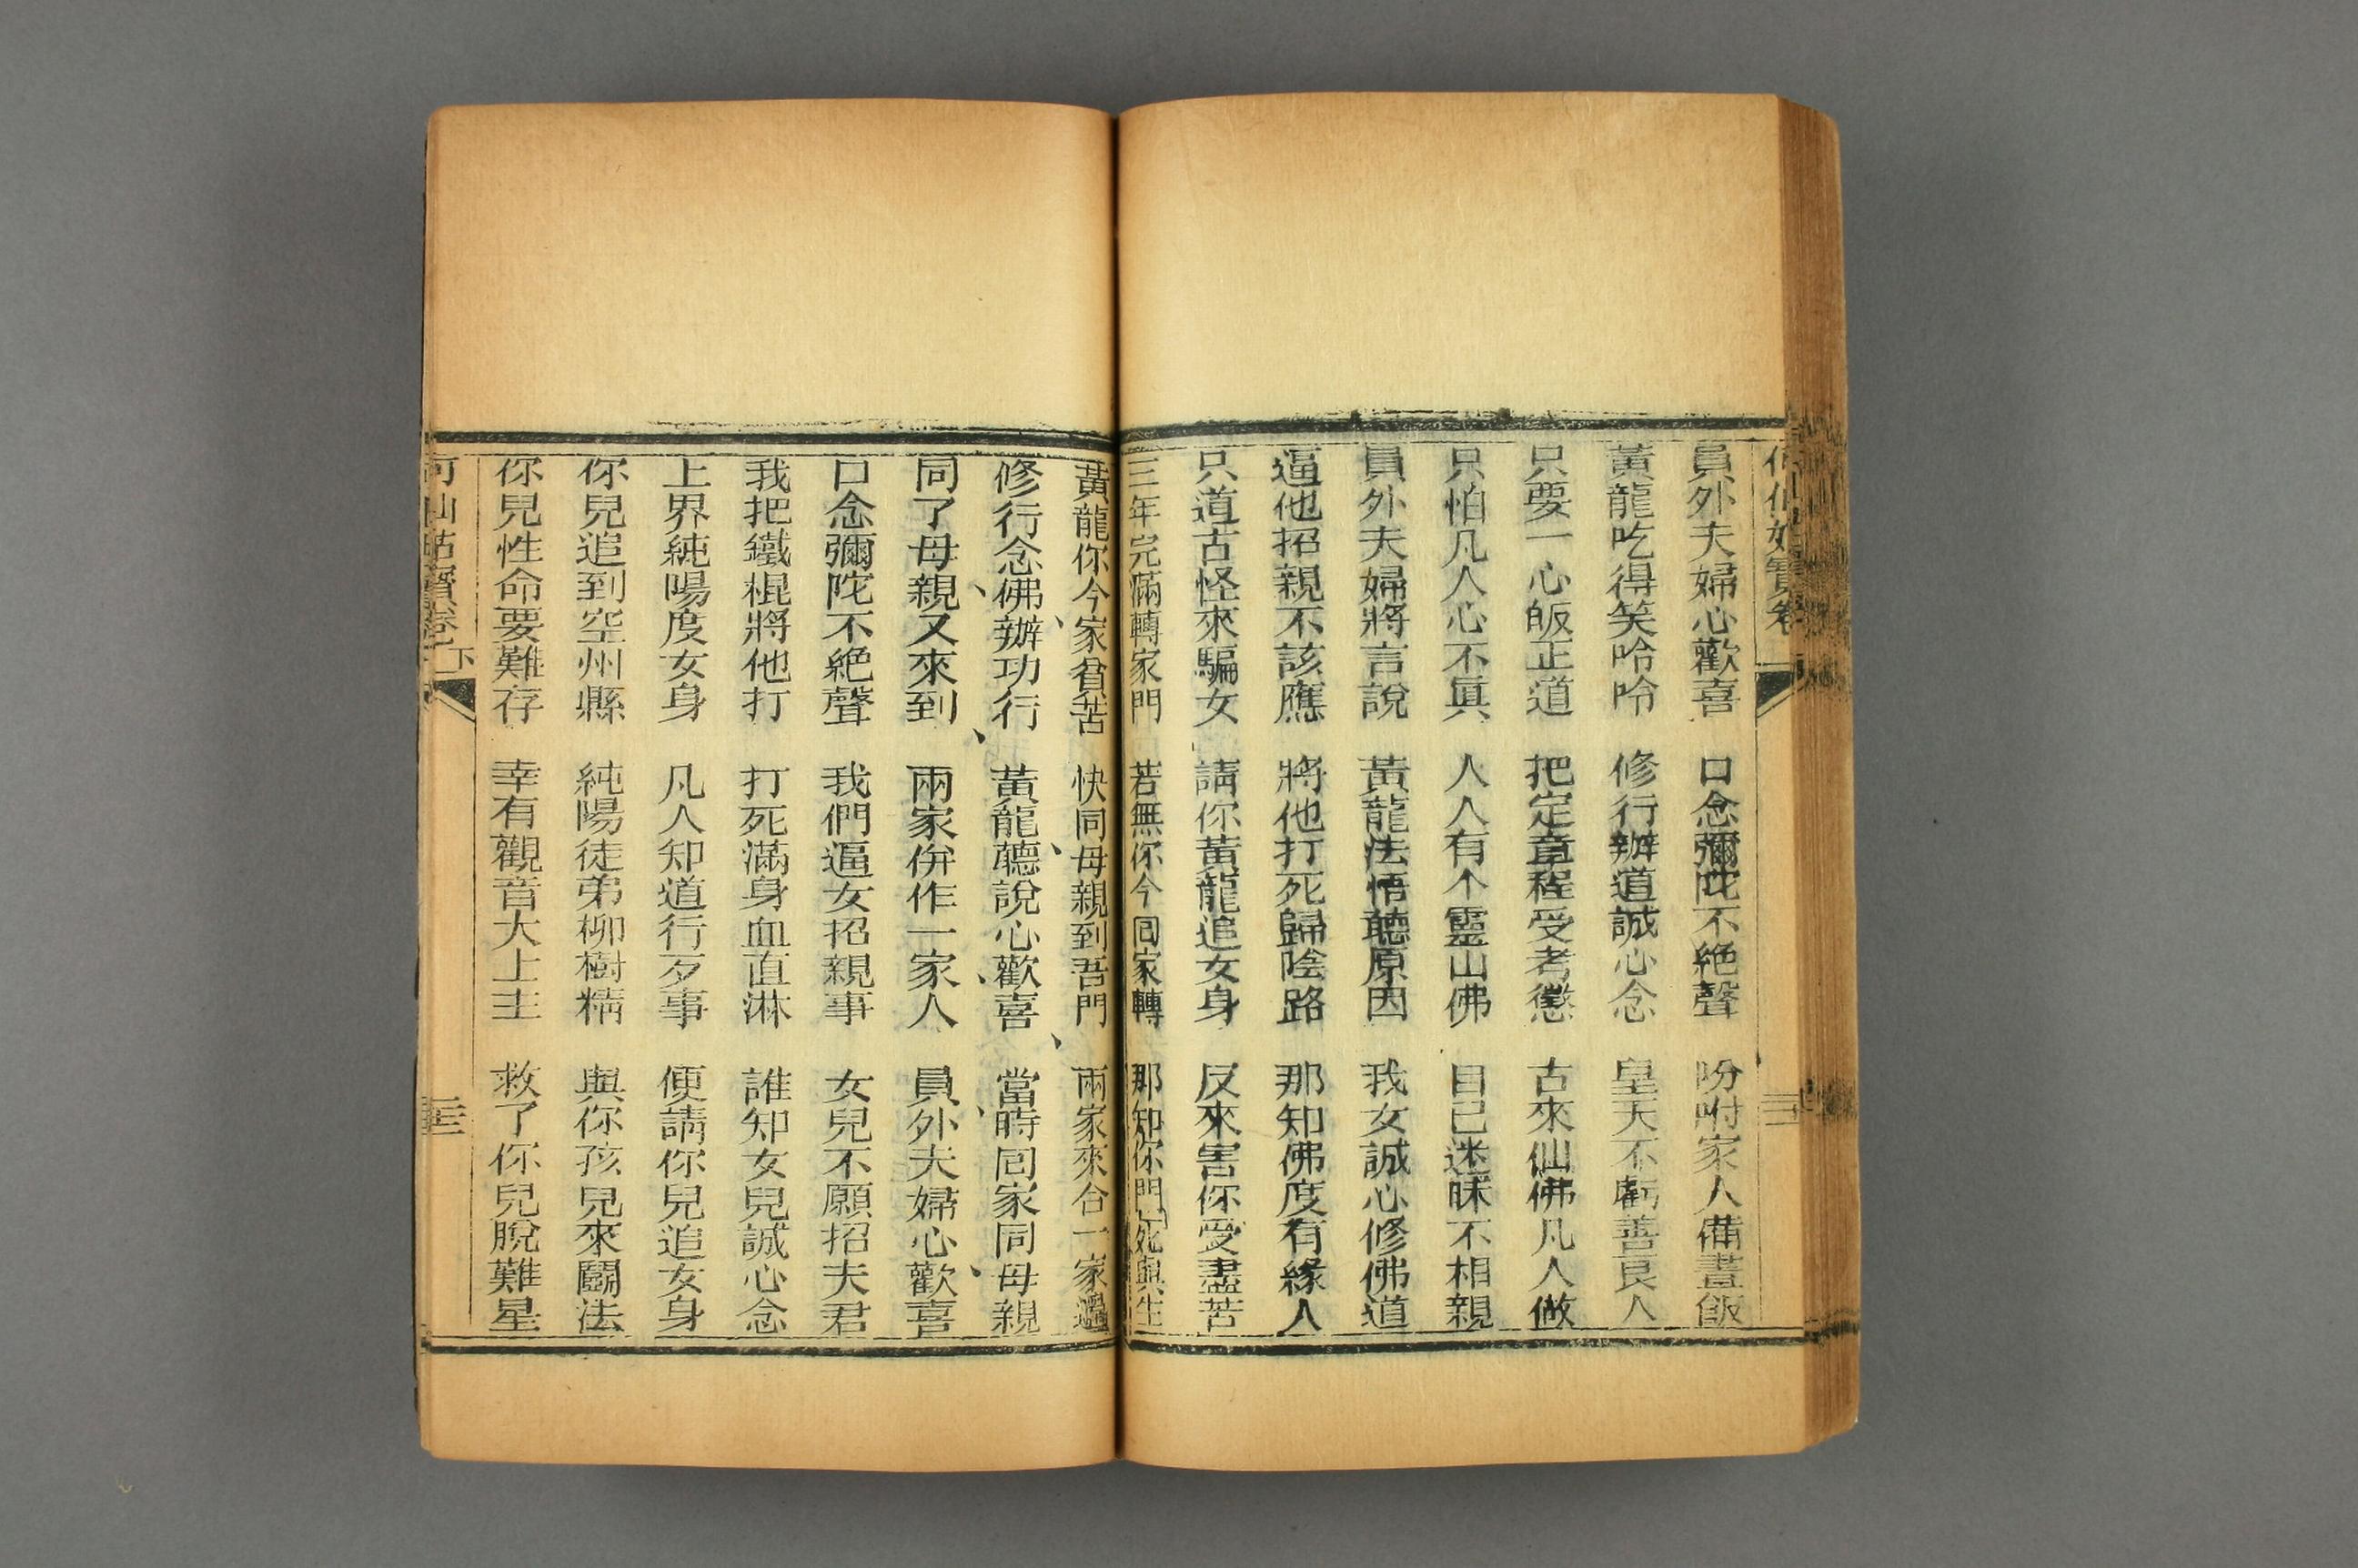 何仙姑寶卷
員外夫婦心歡喜 口念彌陀不絶聲 吩咐家人備晝飯
黃龍吃得笑哈哈 修行辦道誠心念 皇天不虧善良人
只要一心皈正道 把定章程受考懲 古來仙佛凡人做
只怕凡人心不眞 人人有个靈山佛 自己迷昧不相親
員外夫婦將言說 黃龍法悟聽原因 我女誠心修佛道
逼他招親不該應 將他打死歸陰路 那知佛度有緣人
只道古怪來騙女 請你黃龍追女身 反來害你受盡苦
三年完滿轉家門 若無你今囘家轉 那知你門死與生
黃龍你今家貧苦 快同母親到吾門 兩家來合一家過
修行念佛辦功行 黃龍聽說心歡喜 當時囘家同母親
同了母親又來到 兩家併作一家人 員外夫婦心歡喜
口念彌陀不絶聲 我們逼女招親事 女兒不願招夫君
我把鐵棍將他打 打死滿身血直淋 誰知女兒誠心念
上界純陽度女身 凡人知道行歹事 便請你兒追女身
你兒追到空州縣 純陽徒弟柳樹精 與你孩兒來鬭法
你兒性命要難存 幸有觀音大上主 救了你兒脫難星
何仙姑寶卷 下